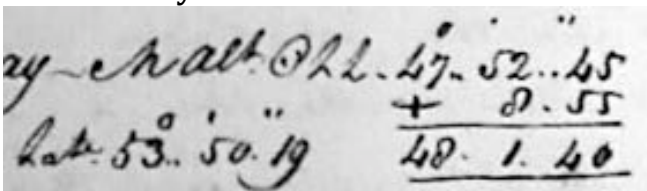 ay - Malt. ☉ LL. 47°. 52'.. 45"
+ 8. 55
Latte. 53°. 50'. 19" 48. 1. 40